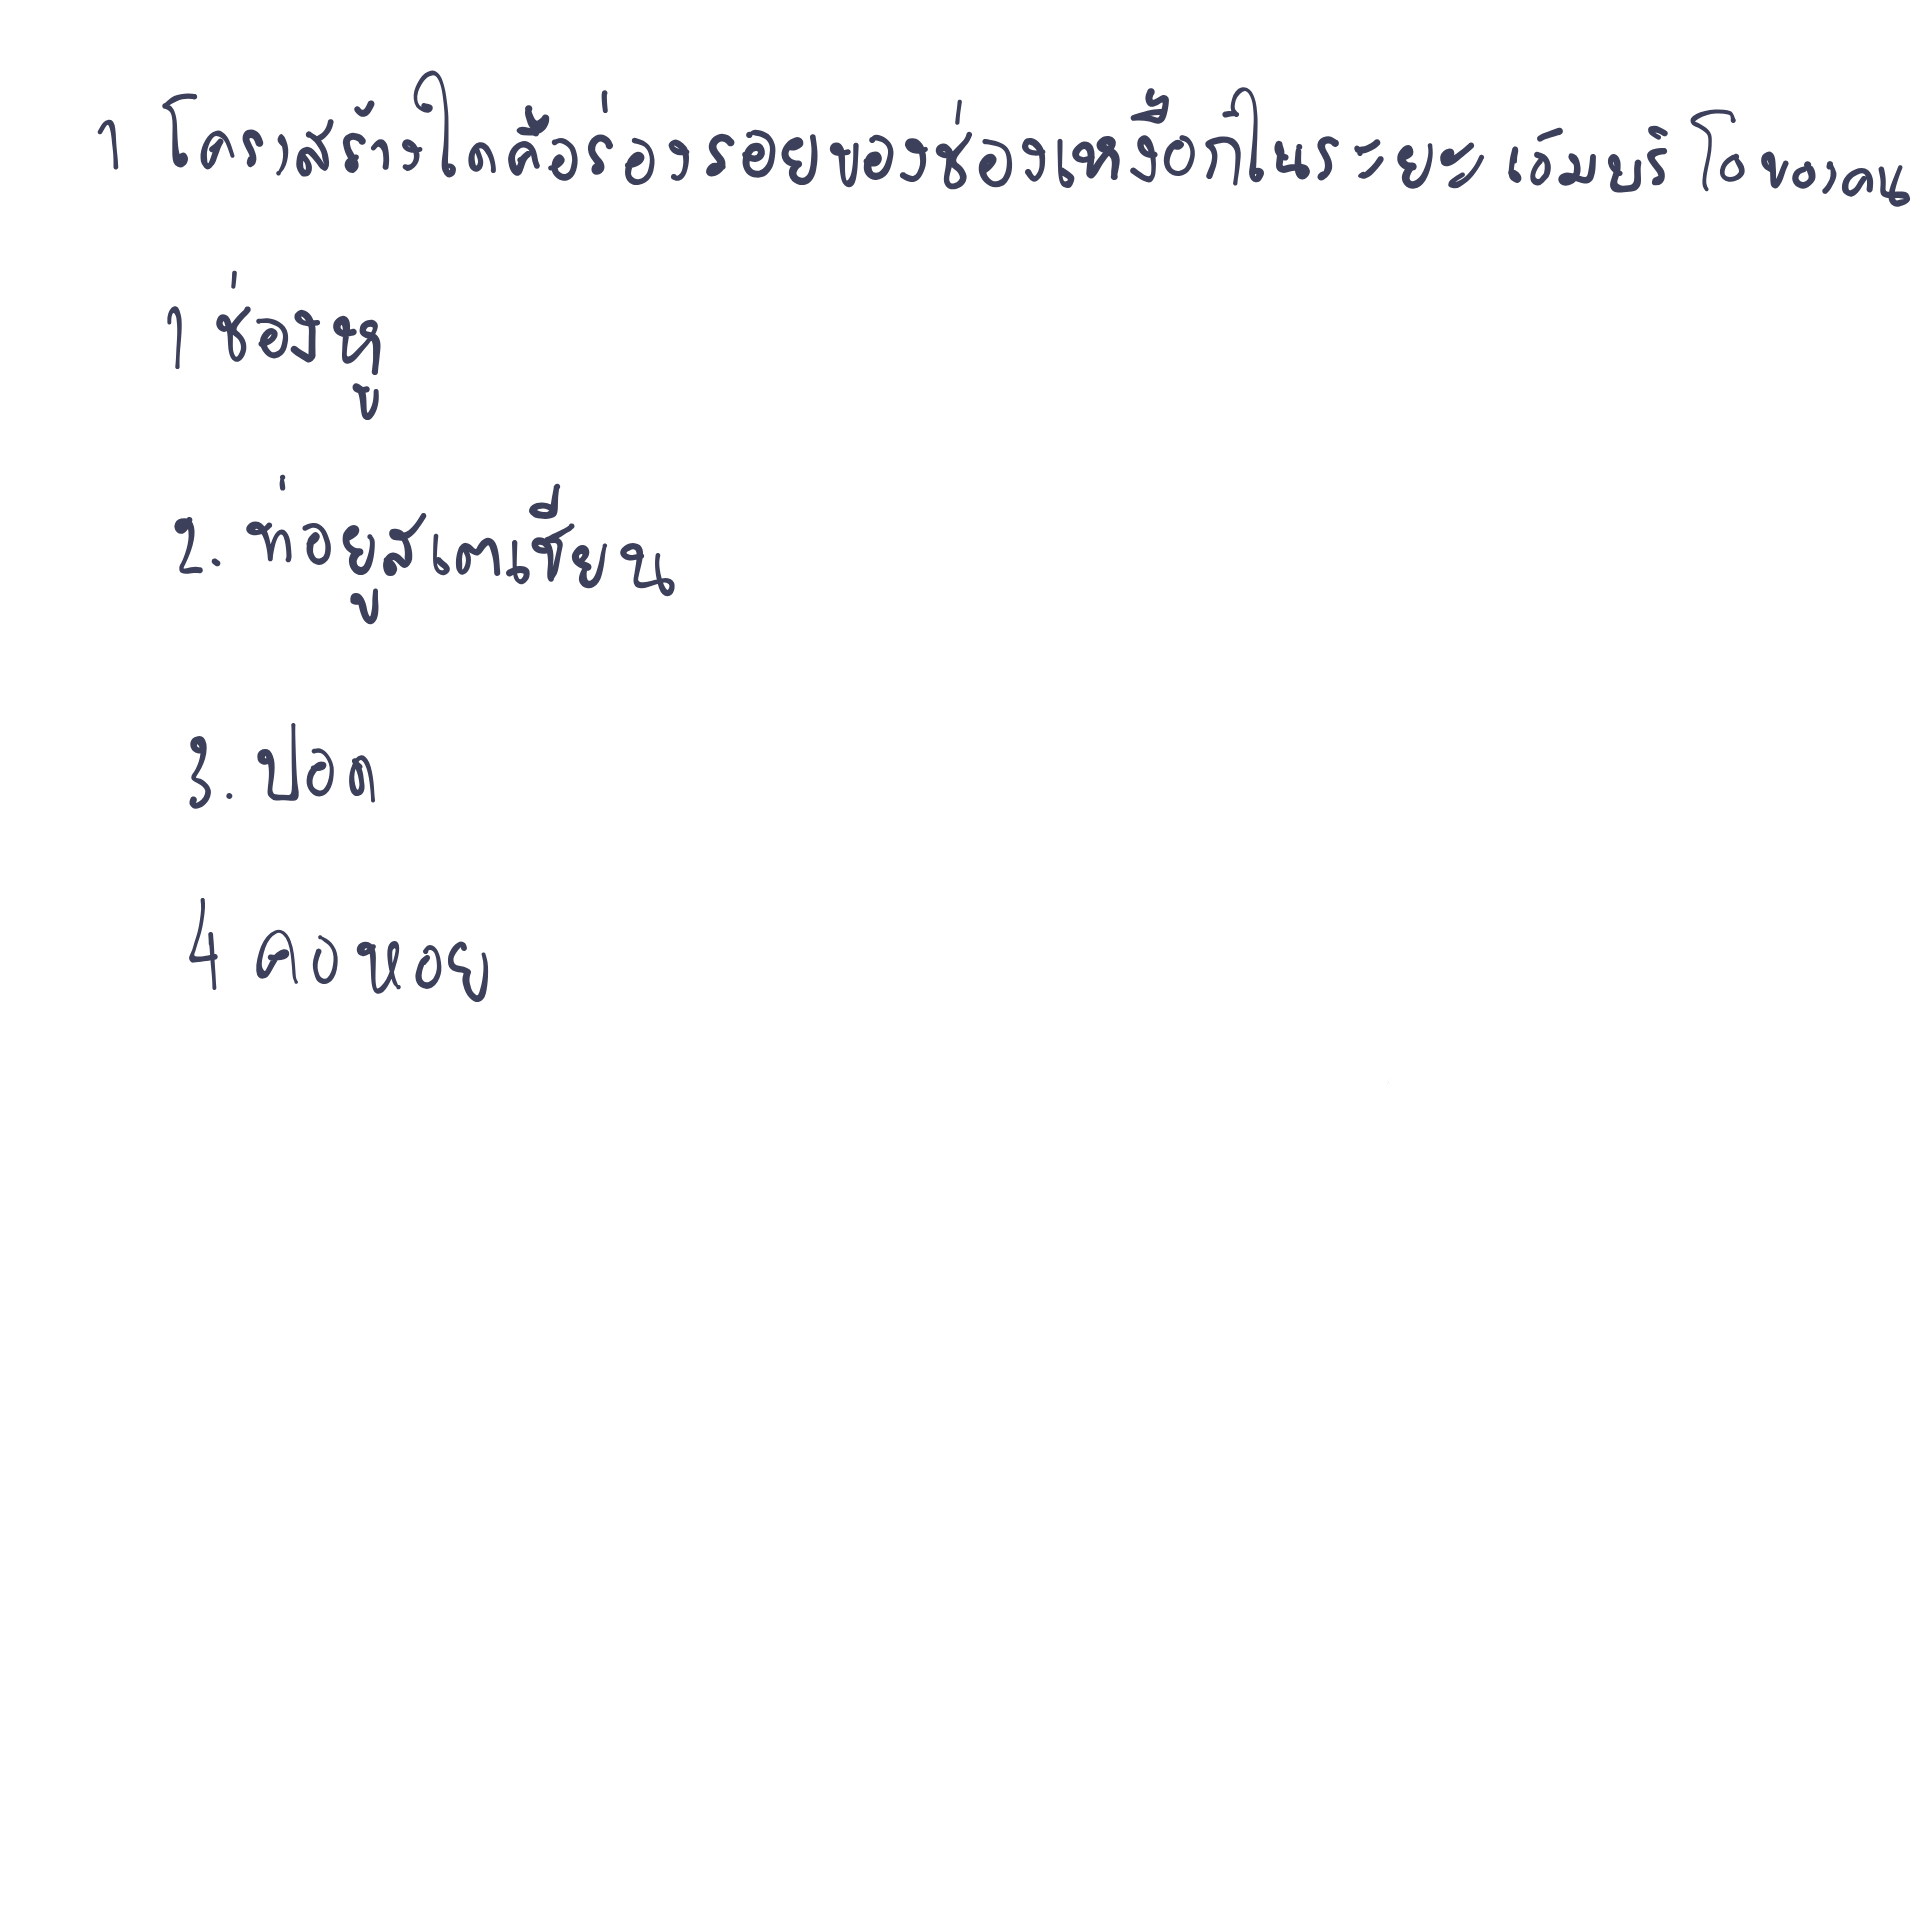 1 โครงสร้างใดคือร่องรอยของช่องเหงือกในระยะเอ็มบริโอของคน
1 ช่องหู
2. ท่อยูสเตเชียน
3. ปอด
4 คอหอย